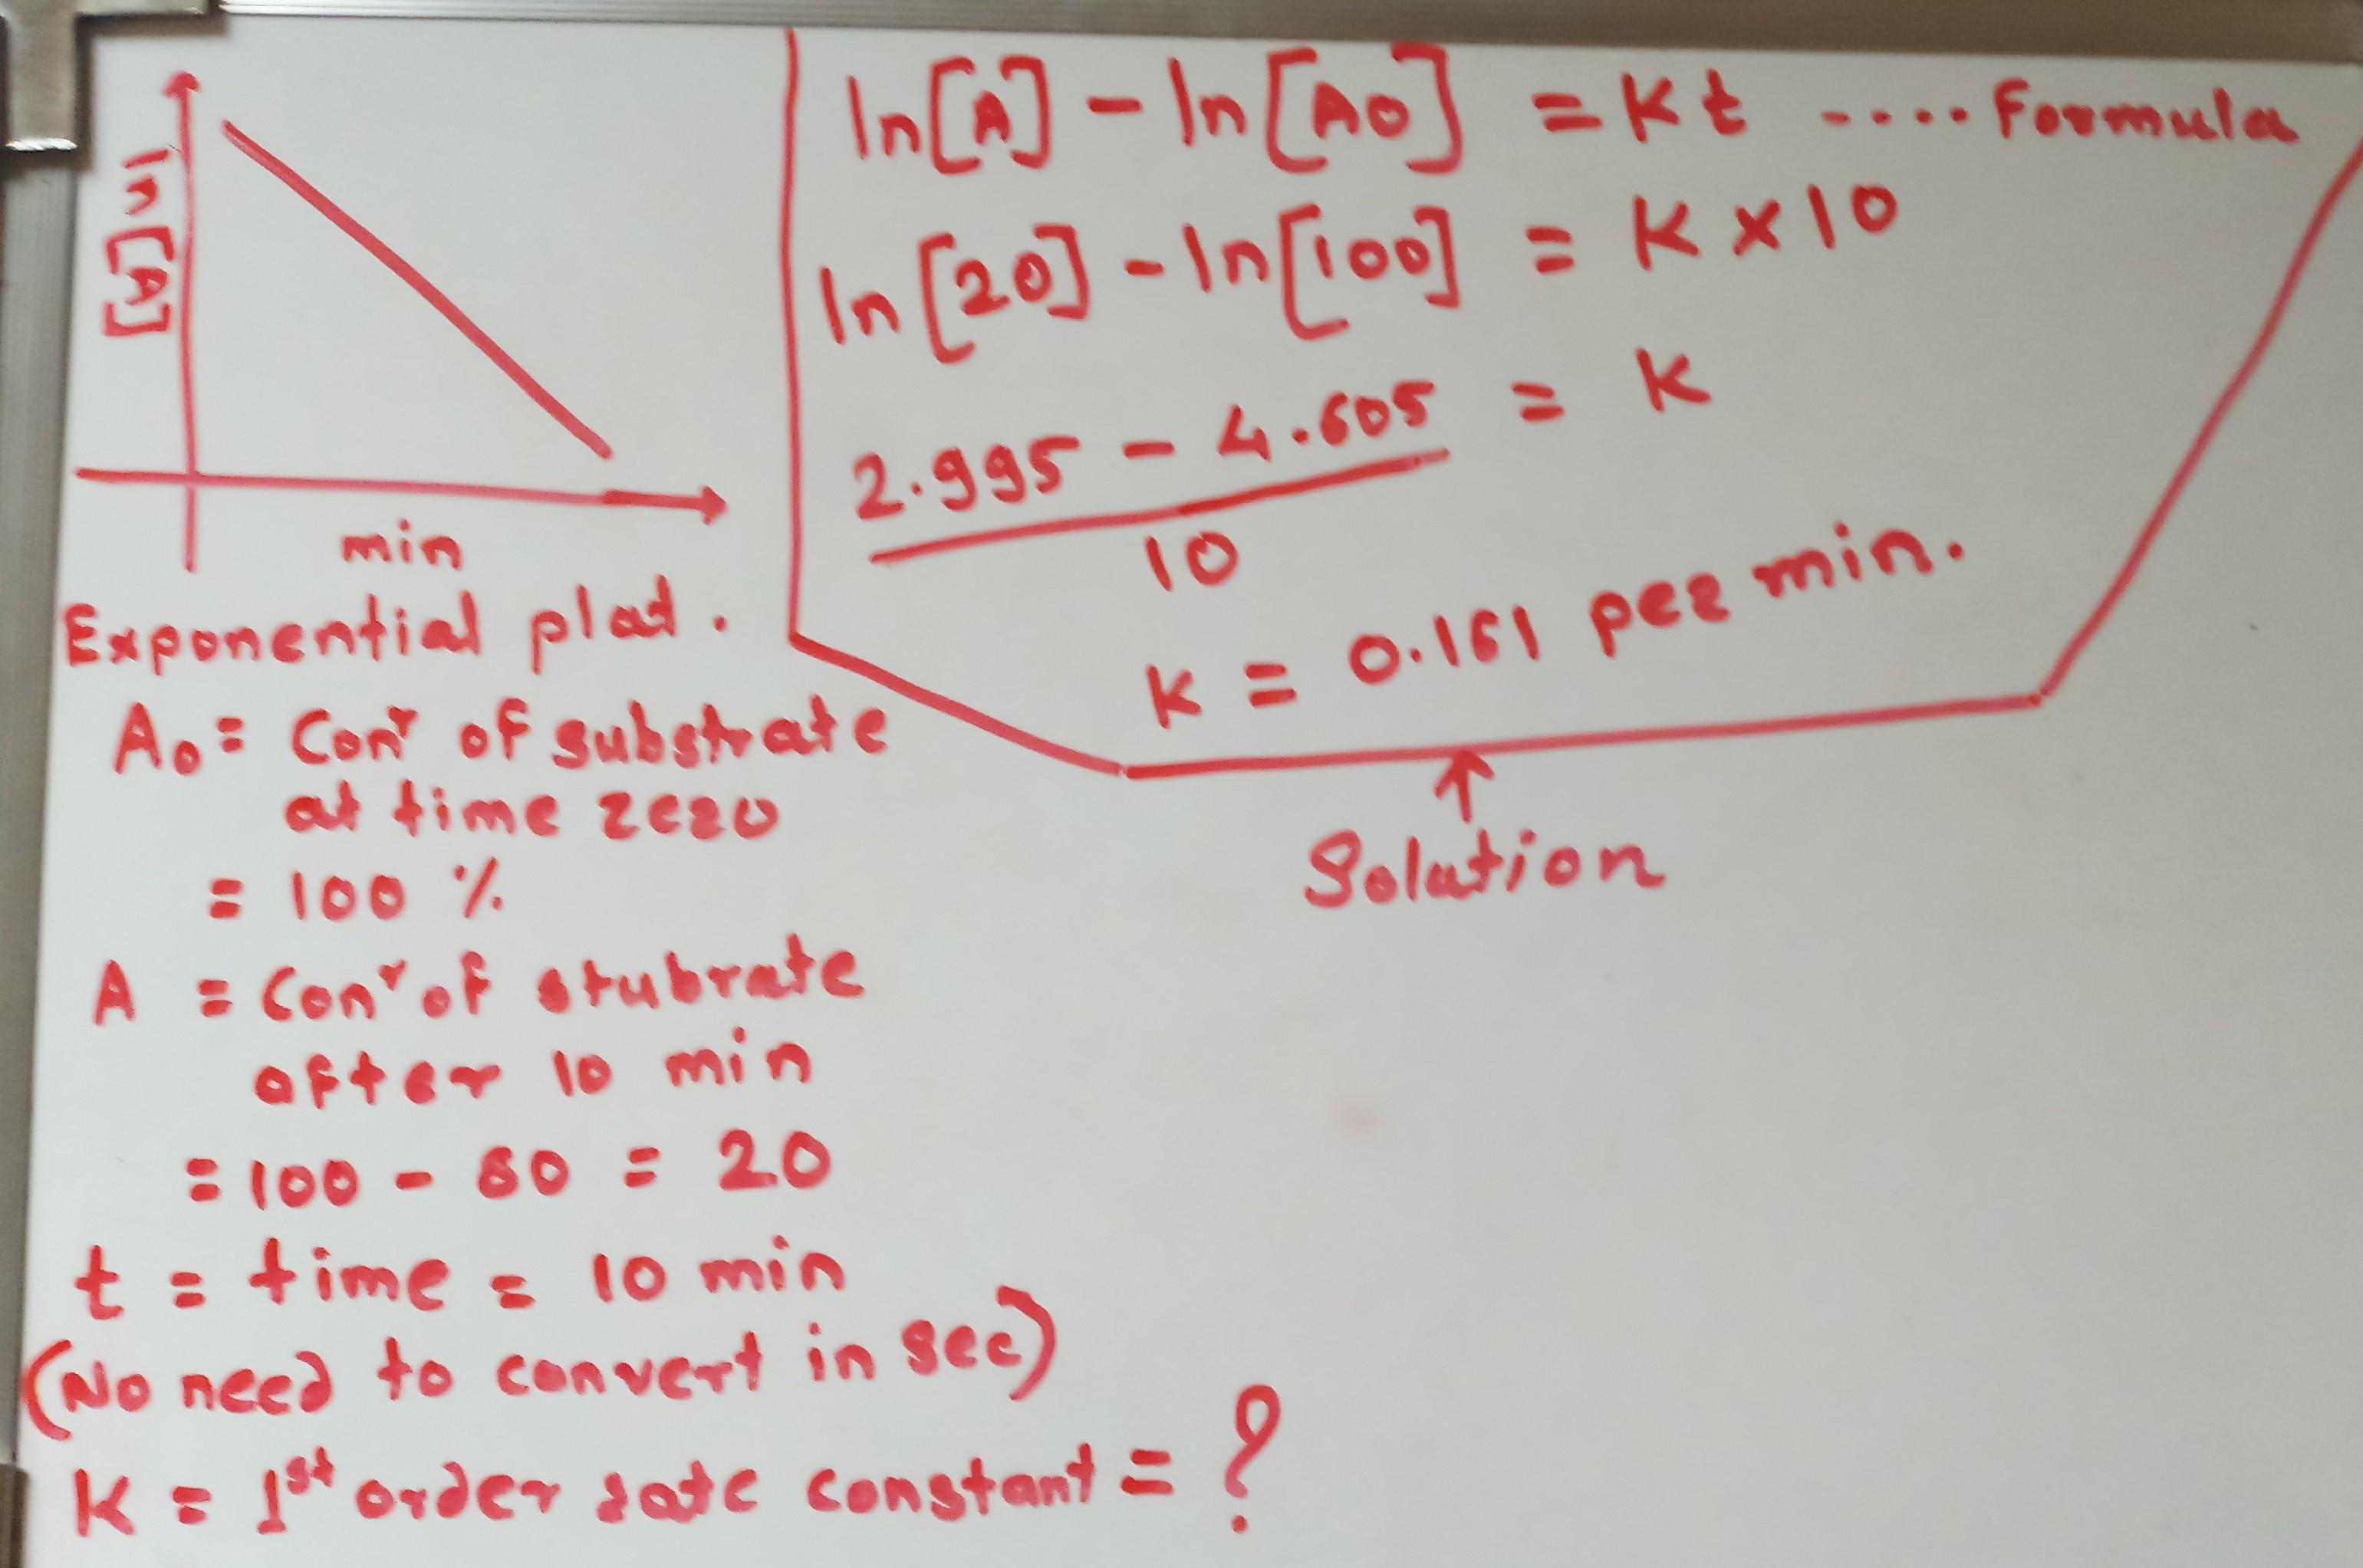 ln[A]
min
Exponential plot.
A0 = Conr of substrate
at time zero
= 100 %
A = Conr of stubrate
after 10 min
= 100 - 80 = 20
t = time = 10 min
(No need to convert in sec)
K = 1st order rate constant = ?
ln[A] - ln[A0] = Kt .... Formula
ln[20] - ln[100] = K x 10
2.995 - 4.605 = K
10
K = 0.161 per min.
↑
Solution